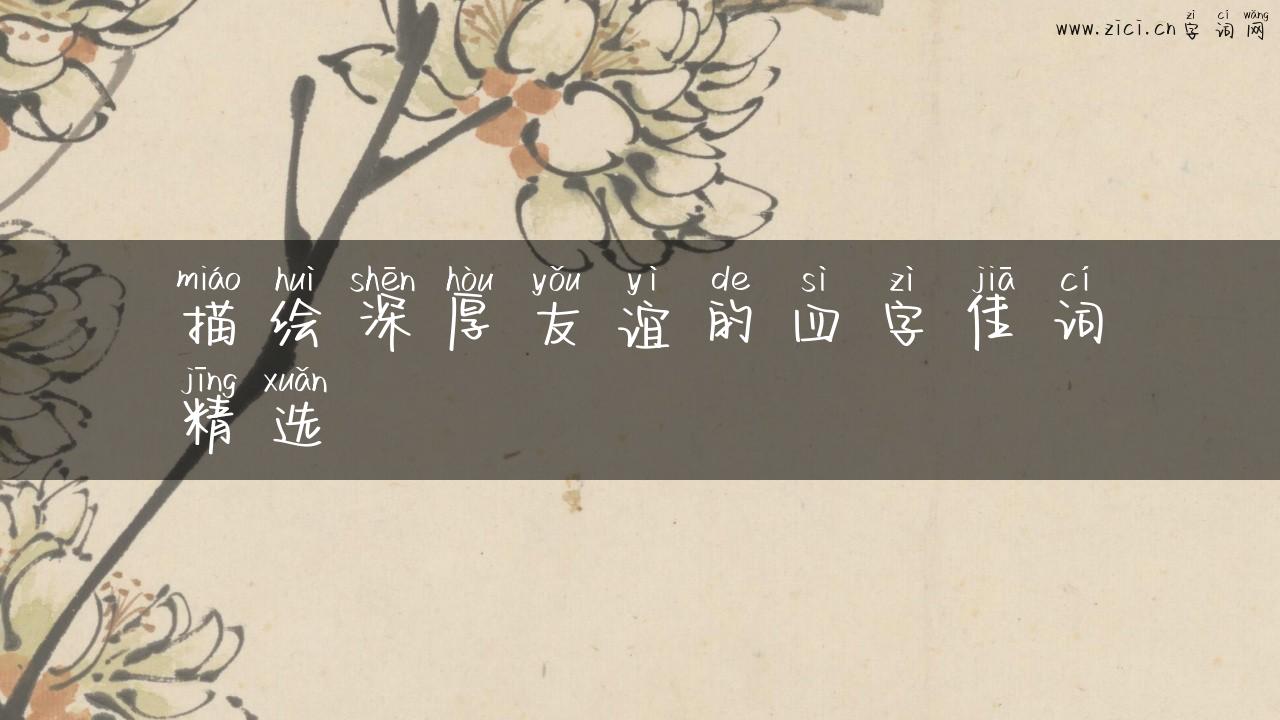 zì cí wǎng
www.zici.cn 字词网
miáo huì shēn hòu yǒu yì de sì zì jiā cí
描绘深厚友谊的四字佳词
jīng xuǎn
精选